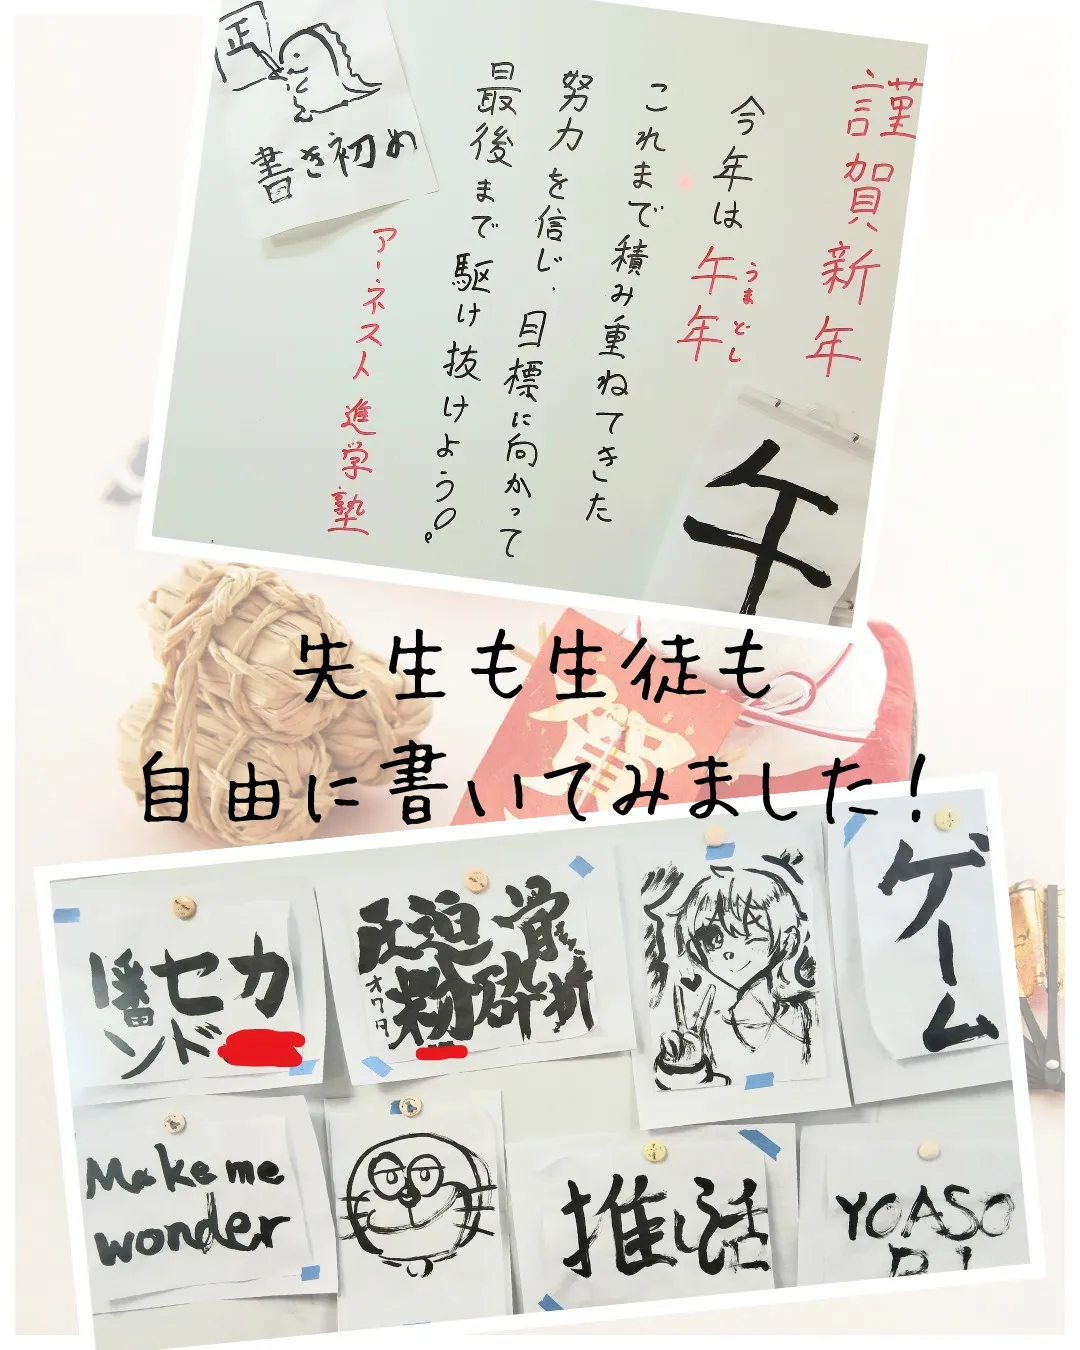 謹賀新年
今年は午年
うまどし
これまで積み重ねてきた
努力を信じ、目標に向かって
最後まで駆け抜けよう!
アーネスト進学塾
正
書き初め
午
賀
先生も生徒も
自由に書いてみました!
セカ
ンド
圧迫骨
粉砕折
オワタ
ゲーム
Make me
wonder
推し活
YOASO
BI